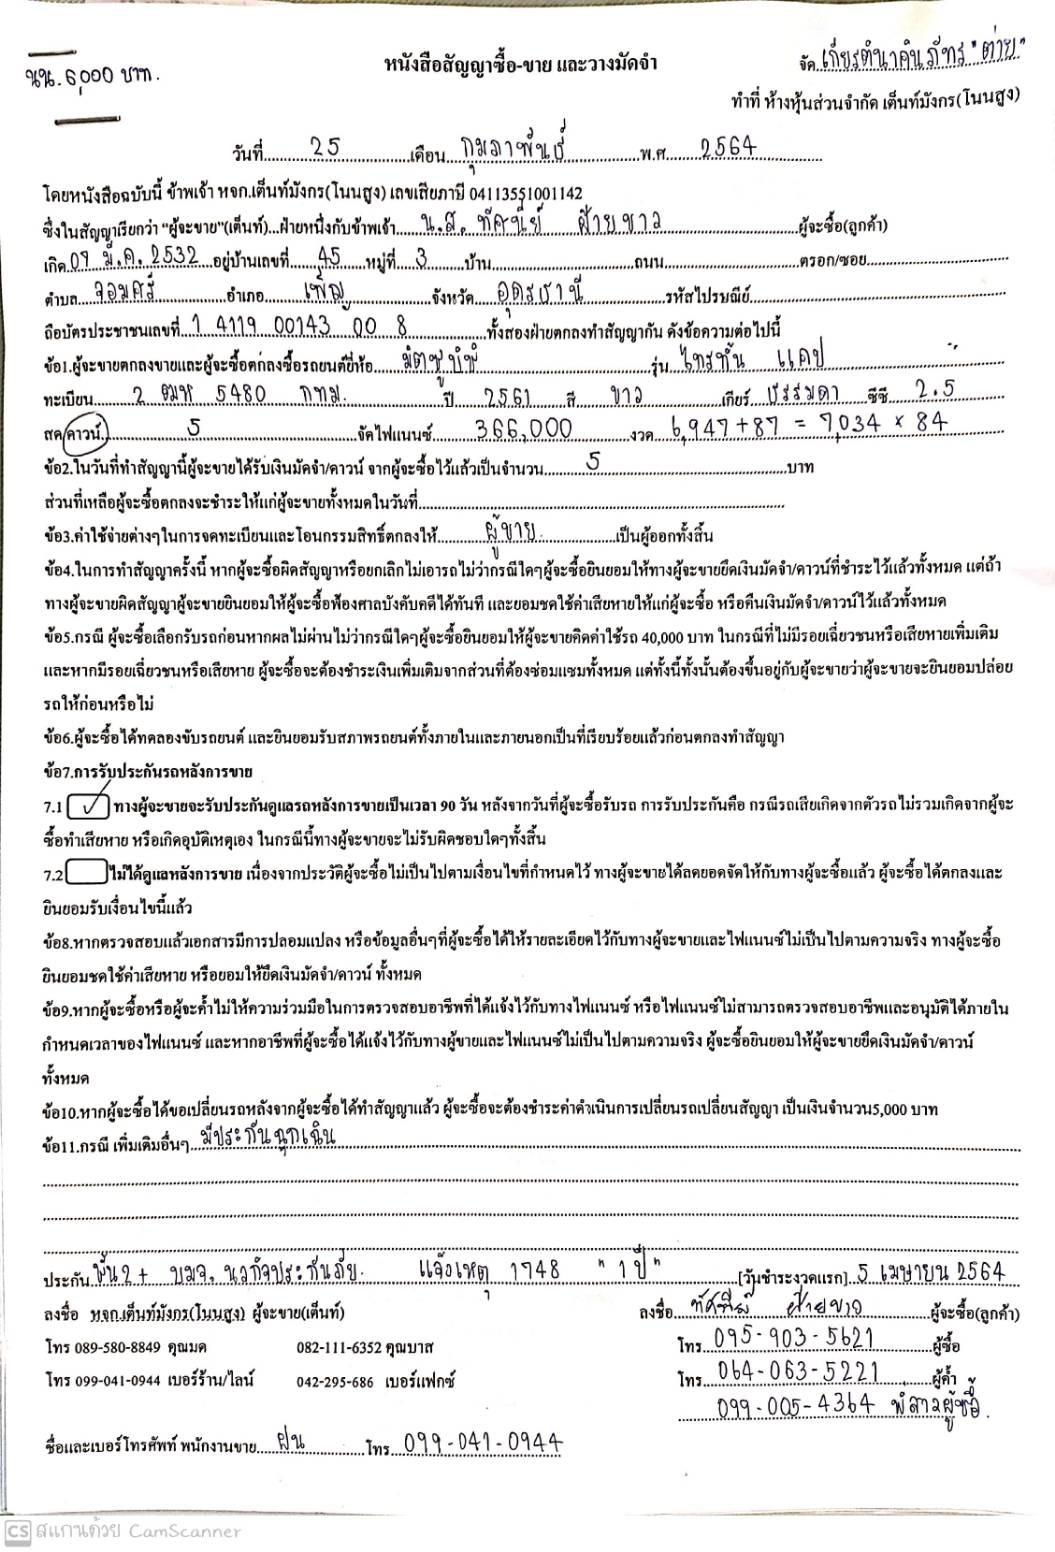 นน. 6,000 บาท.
หนังสือสัญญาซื้อ-ขาย และวางมัดจำ
จัด เกียรตินาคินภัทร "ต่าย"
ทำที่ ห้างหุ้นส่วนจำกัด เต็นท์มังกร(โนนสูง)
วันที่ 25 เดือน กุมภาพันธ์ พ.ศ. 2564
โดยหนังสือฉบับนี้ ข้าพเจ้า หจก.เต็นท์มังกร(โนนสูง) เลขเสียภาษี 04113551001142
ซึ่งในสัญญาเรียกว่า "ผู้จะขาย"(เต็นท์)...ฝ่ายหนึ่งกับข้าพเจ้า น.ส. ทัศนีย์ ฝ้ายขาว ผู้จะซื้อ(ลูกค้า)
เกิด 09 มี.ค. 2532 อยู่บ้านเลขที่ 45 หมู่ที่ 3 บ้าน ถนน ตรอก/ซอย
ตำบล จอมศรี อำเภอ เพ็ญ จังหวัด อุดรธานี รหัสไปรษณีย์
ถือบัตรประชาชนเลขที่ 1 4119 00143 00 8 ทั้งสองฝ่ายตกลงทำสัญญากัน ดังข้อความต่อไปนี้
ข้อ1.ผู้จะขายตกลงขายและผู้จะซื้อตกลงซื้อรถยนต์ยี่ห้อ มิตซูบิชิ รุ่น ไทรทัน แคป
ทะเบียน 2 ฒห 5480 กทม. ปี 2561 สี ขาว เกียร์ ธรรมดา ซีซี 2.5
สด/ดาวน์ 5 จัดไฟแนนซ์ 366,000 งวด 6,947+87 = 7,034 × 84
ข้อ2.ในวันที่ทำสัญญานี้ผู้จะขายได้รับเงินมัดจำ/ดาวน์ จากผู้จะซื้อไว้แล้วเป็นจำนวน 5 บาท
ส่วนที่เหลือผู้จะซื้อตกลงจะชำระให้แก่ผู้จะขายทั้งหมดในวันที่
ข้อ3.ค่าใช้จ่ายต่างๆในการจดทะเบียนและโอนกรรมสิทธิ์ตกลงให้ ผู้ขาย เป็นผู้ออกทั้งสิ้น
ข้อ4.ในการทำสัญญาครั้งนี้ หากผู้จะซื้อผิดสัญญาหรือยกเลิกไม่เอารถไม่ว่ากรณีใดๆผู้จะซื้อยินยอมให้ทางผู้จะขายยึดเงินมัดจำ/ดาวน์ที่ชำระไว้แล้วทั้งหมด แต่ถ้า
ทางผู้จะขายผิดสัญญาผู้จะขายยินยอมให้ผู้จะซื้อฟ้องศาลบังคับคดีได้ทันที และยอมชดใช้ค่าเสียหายให้แก่ผู้จะซื้อ หรือคืนเงินมัดจำ/ดาวน์ไว้แล้วทั้งหมด
ข้อ5.กรณี ผู้จะซื้อเลือกรับรถก่อนหากผลไม่ผ่านไม่ว่ากรณีใดๆผู้จะซื้อยินยอมให้ผู้จะขายคิดค่าใช้รถ 40,000 บาท ในกรณีที่ไม่มีรอยเฉี่ยวชนหรือเสียหายเพิ่มเติม
และหากมีรอยเฉี่ยวชนหรือเสียหาย ผู้จะซื้อจะต้องชำระเงินเพิ่มเติมจากส่วนที่ต้องซ่อมแซมทั้งหมด แต่ทั้งนี้ทั้งนั้นต้องขึ้นอยู่กับผู้จะขายว่าผู้จะขายจะยินยอมปล่อย
รถให้ก่อนหรือไม่
ข้อ6.ผู้จะซื้อได้ทดลองขับรถยนต์ และยินยอมรับสภาพรถยนต์ทั้งภายในและภายนอกเป็นที่เรียบร้อยแล้วก่อนตกลงทำสัญญา
ข้อ7.การรับประกันรถหลังการขาย
7.1 ✓ ทางผู้จะขายจะรับประกันดูแลรถหลังการขายเป็นเวลา 90 วัน หลังจากวันที่ผู้จะซื้อรับรถ การรับประกันคือ กรณีรถเสียเกิดจากตัวรถไม่รวมเกิดจากผู้จะ
ซื้อทำเสียหาย หรือเกิดอุบัติเหตุเอง ในกรณีนี้ทางผู้จะขายจะไม่รับผิดชอบใดๆทั้งสิ้น
7.2 ไม่ได้ดูแลหลังการขาย เนื่องจากประวัติผู้จะซื้อไม่เป็นไปตามเงื่อนไขที่กำหนดไว้ ทางผู้จะขายได้ลดยอดจัดให้กับทางผู้จะซื้อแล้ว ผู้จะซื้อได้ตกลงและ
ยินยอมรับเงื่อนไขนี้แล้ว
ข้อ8.หากตรวจสอบแล้วเอกสารมีการปลอมแปลง หรือข้อมูลอื่นๆที่ผู้จะซื้อได้ให้รายละเอียดไว้กับทางผู้จะขายและไฟแนนซ์ไม่เป็นไปตามความจริง ทางผู้จะซื้อ
ยินยอมชดใช้ค่าเสียหาย หรือยอมให้ยึดเงินมัดจำ/ดาวน์ ทั้งหมด
ข้อ9.หากผู้จะซื้อหรือผู้จะค้ำไม่ให้ความร่วมมือในการตรวจสอบอาชีพที่ได้แจ้งไว้กับทางไฟแนนซ์ หรือไฟแนนซ์ไม่สามารถตรวจสอบอาชีพและอนุมัติได้ภายใน
กำหนดเวลาของไฟแนนซ์ และหากอาชีพที่ผู้จะซื้อได้แจ้งไว้กับทางผู้ขายและไฟแนนซ์ไม่เป็นไปตามความจริง ผู้จะซื้อยินยอมให้ผู้จะขายยึดเงินมัดจำ/ดาวน์
ทั้งหมด
ข้อ10.หากผู้จะซื้อได้ขอเปลี่ยนรถหลังจากผู้จะซื้อได้ทำสัญญาแล้ว ผู้จะซื้อจะต้องชำระค่าดำเนินการเปลี่ยนรถเปลี่ยนสัญญา เป็นเงินจำนวน5,000 บาท
ข้อ11.กรณี เพิ่มเติมอื่นๆ มีประกันฉุกเฉิน
ประกัน ชั้น2+ บมจ. นวกิจประกันภัย. แจ้งเหตุ 1748 "1 ปี" [วันชำระงวดแรก] 5 เมษายน 2564
ลงชื่อ หจก.เต็นท์มังกร(โนนสูง) ผู้จะขาย(เต็นท์) ลงชื่อ ทัศนีย์ ฝ้ายขาว ผู้จะซื้อ(ลูกค้า)
โทร 089-580-8849 คุณมด 082-111-6352 คุณบาส โทร 095-903-5621 ผู้ซื้อ
โทร 099-041-0944 เบอร์ร้าน/ไลน์ 042-295-686 เบอร์แฟกซ์ โทร 064-063-5221 ผู้ค้ำ
099-005-4364 พี่สาวผู้ซื้อ.
ชื่อและเบอร์โทรศัพท์ พนักงานขาย ฝน โทร 099-041-0944
CS สแกนด้วย CamScanner